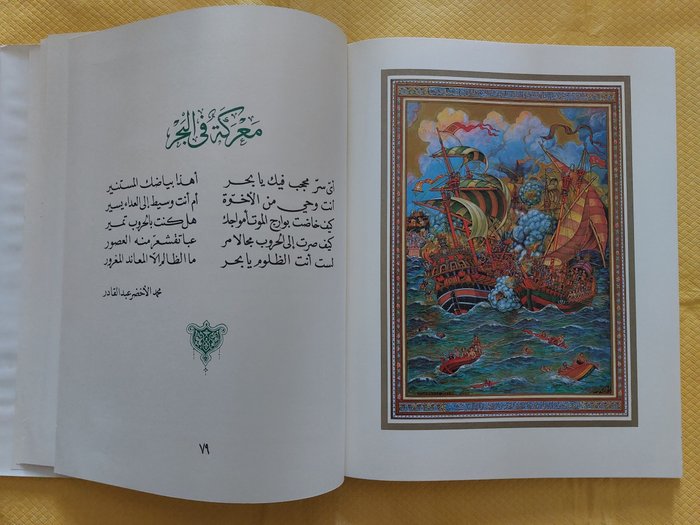 معركة في البحر
أي سرّ محجب فيك يا بحر أهذا بياضك المستنير
أنت وحي من الأخوّة أم أنت وسيط إلى العداء يسير
كيف خاضت بوارج الموت أمواجك هل كنت بالحروب تمير
كيف صرت إلى الحروب مجالا مرعبا تقشعرّ منه العصور
لست أنت الظلوم يا بحر ما الظالم إلا المعاند المغرور
محمد الأخضر عبد القادر
٧٩